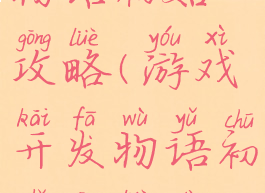 gōng lüè yóu xì
攻略(游戏
kāi fā wù yǔ chū
开发物语初